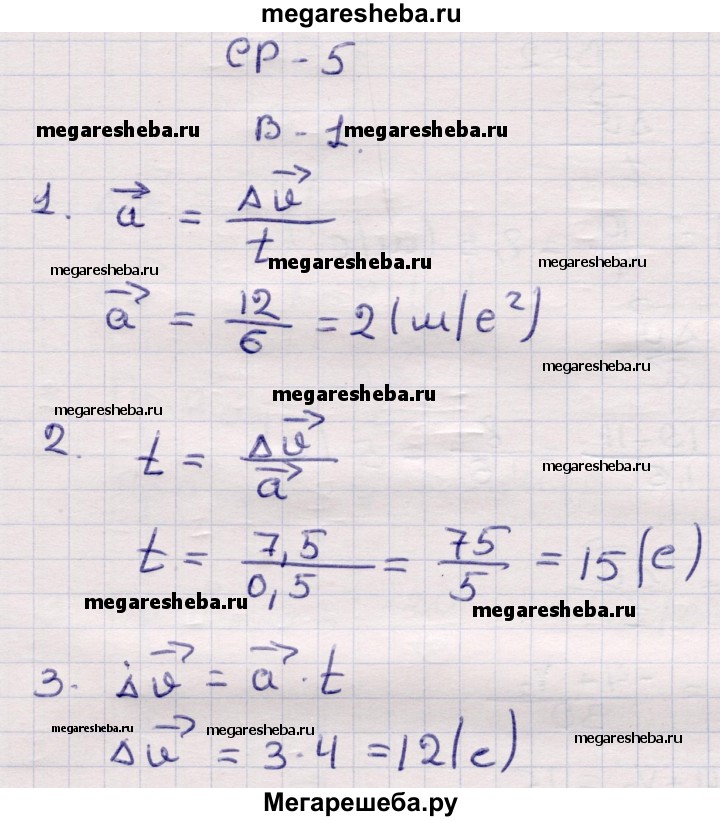 megaresheba.ru
СР - 5
megaresheba.ru В - 1. megaresheba.ru
1. a⃗ = Δv⃗ / t
megaresheba.ru megaresheba.ru megaresheba.ru
a⃗ = 12/6 = 2 (м/с²)
megaresheba.ru
megaresheba.ru
megaresheba.ru
2. t = Δv⃗ / a⃗
megaresheba.ru
t = 7,5/0,5 = 75/5 = 15 (с)
megaresheba.ru megaresheba.ru
3. Δv⃗ = a⃗ · t
megaresheba.ru megaresheba.ru megaresheba.ru
Δv⃗ = 3·4 = 12 (с)
Мегарешеба.ру